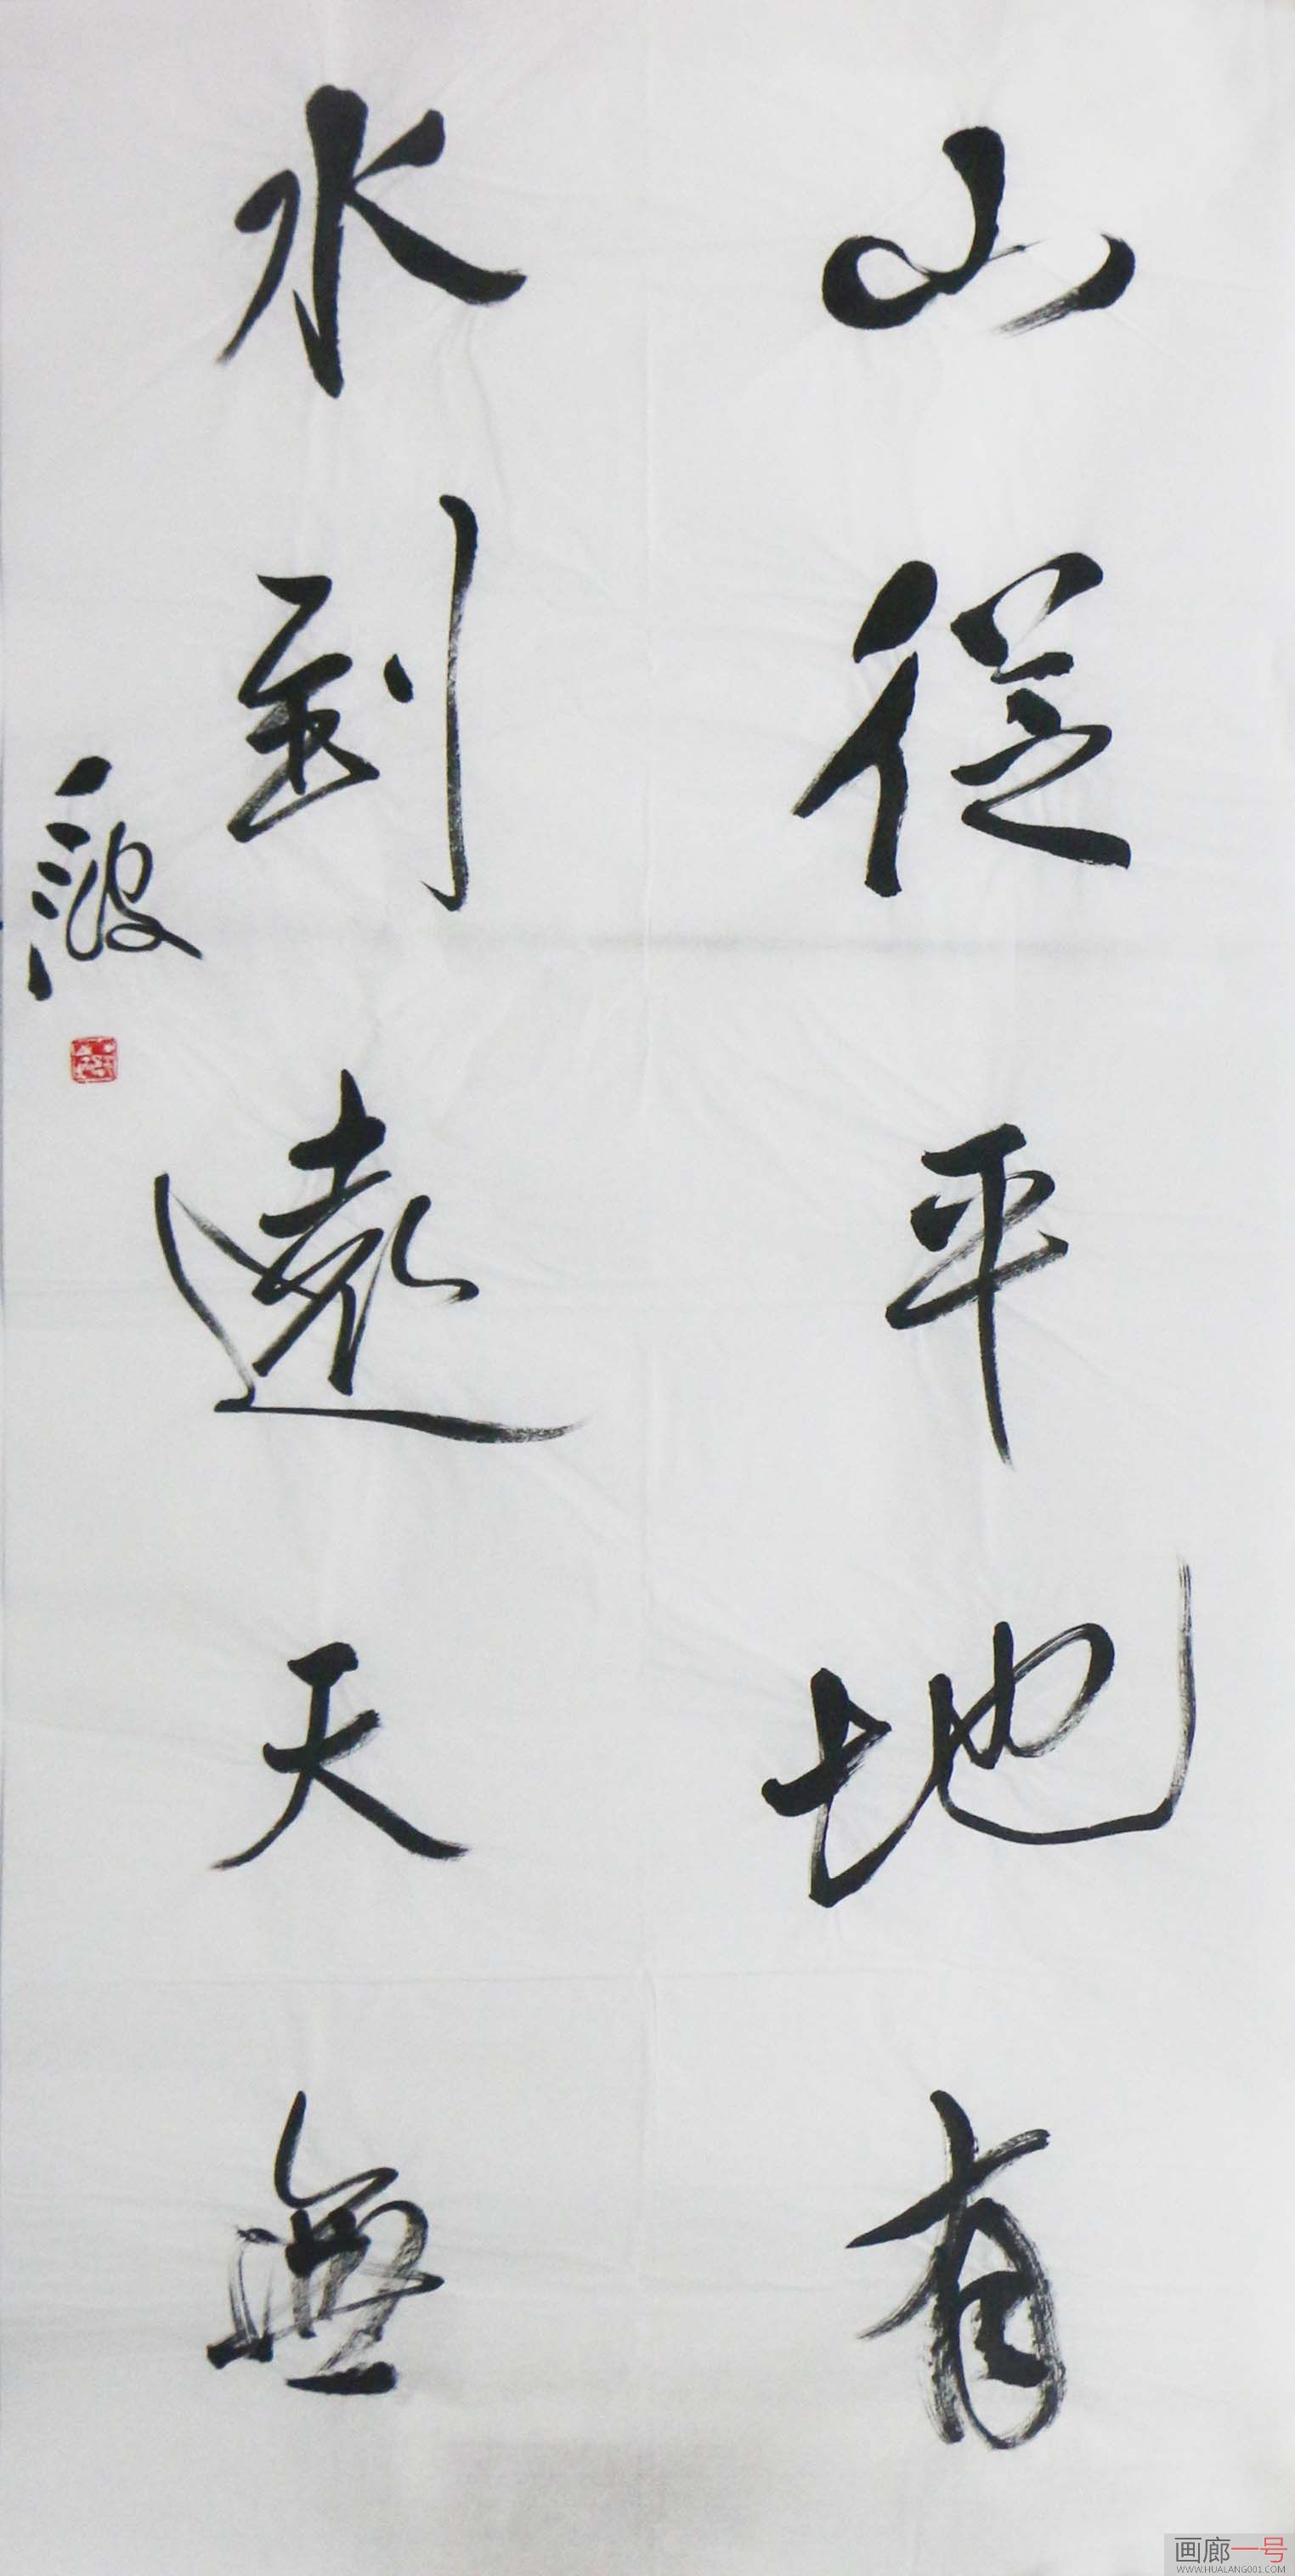 山從平地有
水到遠天無
画廊一号
WWW.HUALANG001.COM